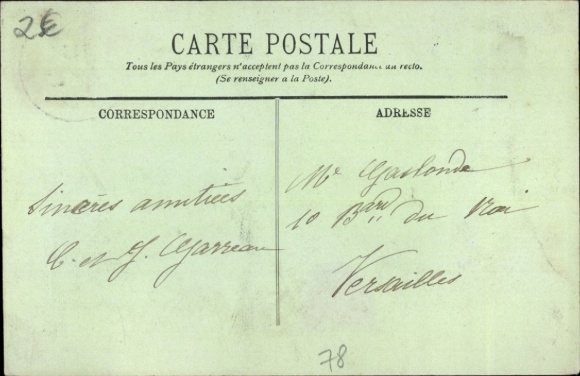 2€
CARTE POSTALE
Tous les Pays étrangers n'acceptent pas la Correspondance au recto.
(Se renseigner a la Poste).
CORRESPONDANCE
ADRESSE
Sincères amitiés
C. et J. Garreau
Mr Gaslonde
10 Bard du Roi
Versailles
78